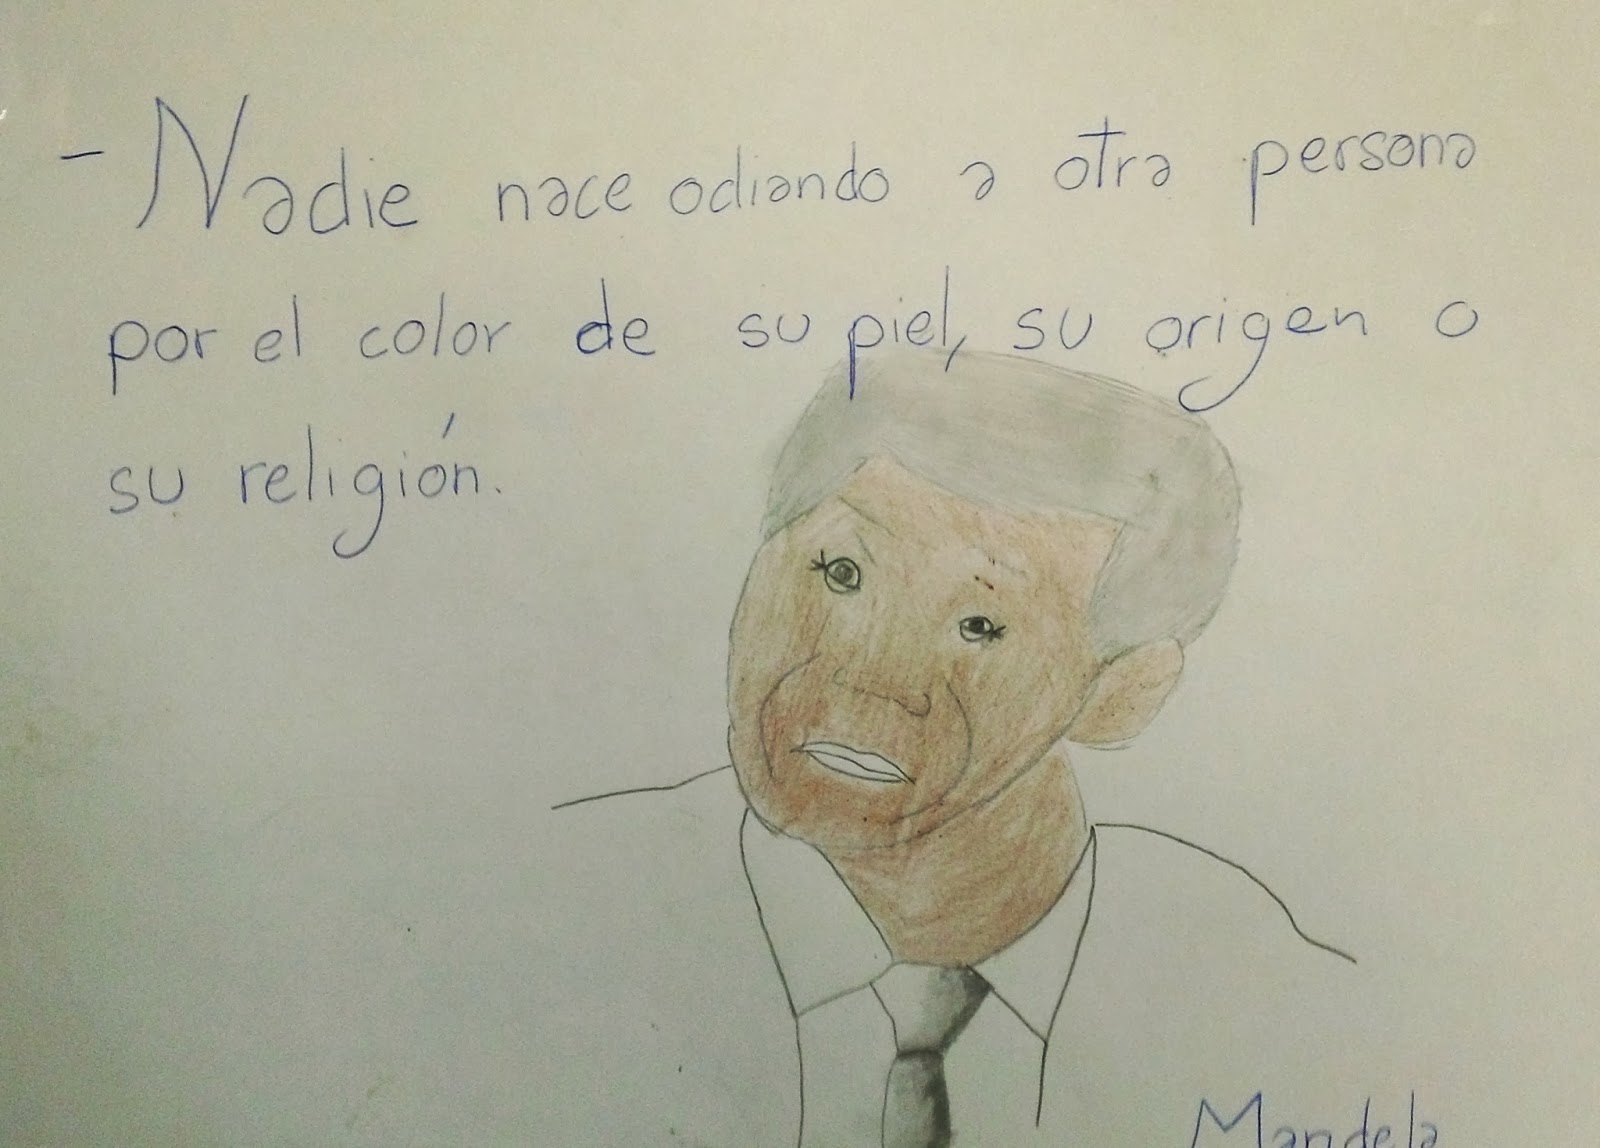 - Nadie nace odiando a otra persona
por el color de su piel, su origen o
su religión.
Mandela